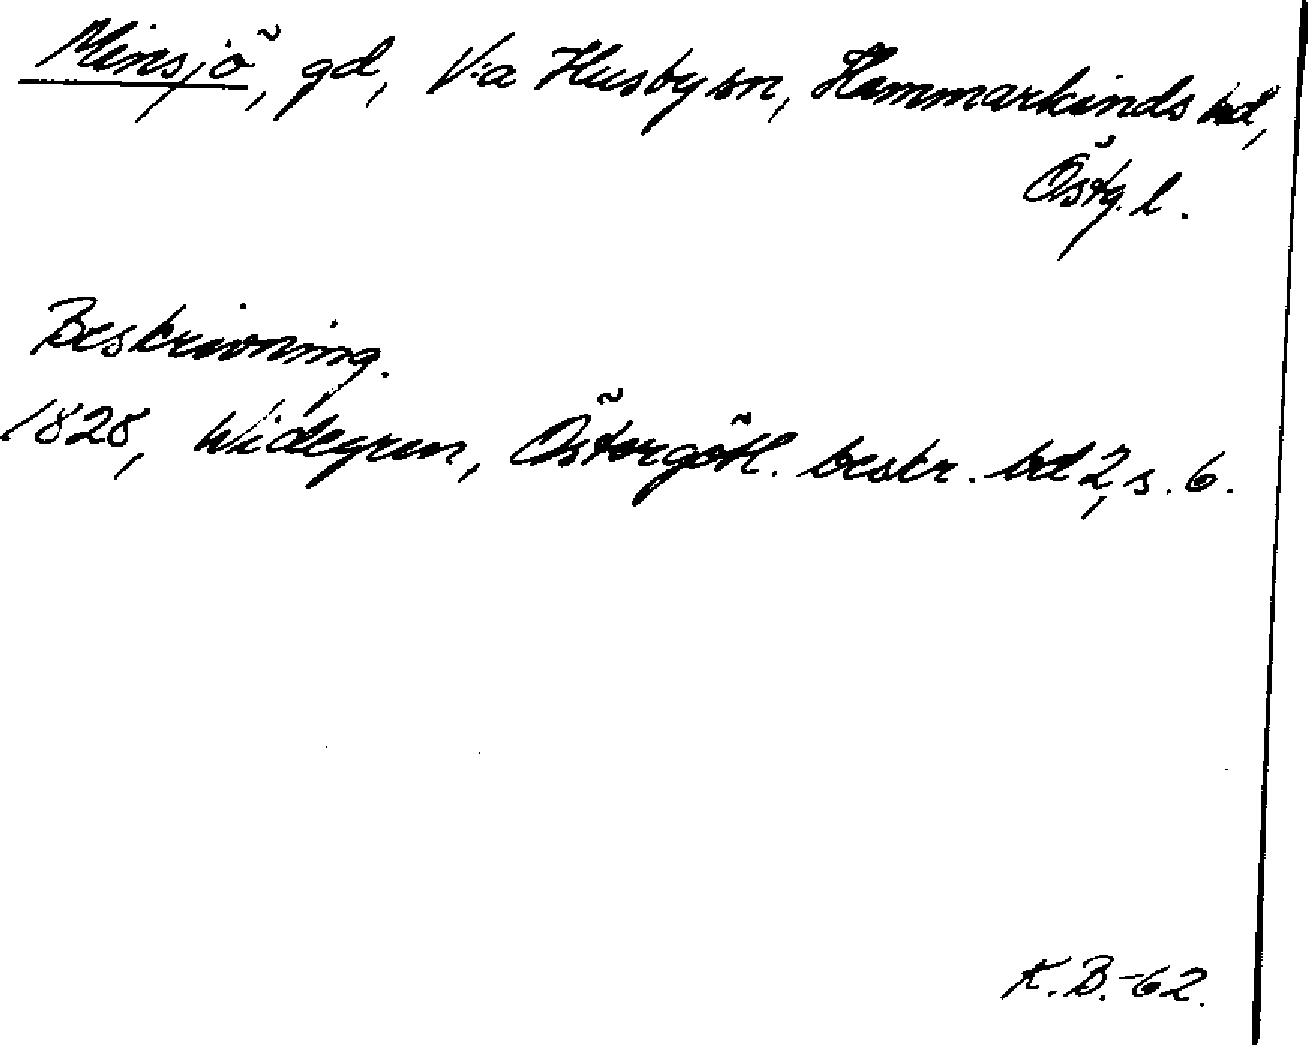 Minsjö, gd, V:a Husby sn, Hammarkinds hd,
Östg. l.
Beskrivning.
1828, Widegren, Östergötl. beskr. bd 2, s. 6.
K.B.-62.